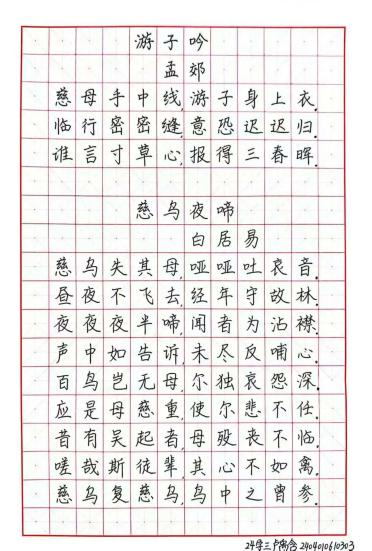 游子吟
孟郊
慈母手中线,游子身上衣.
临行密密缝,意恐迟迟归.
谁言寸草心,报得三春晖.
慈乌夜啼
白居易
慈乌失其母,哑哑吐哀音.
昼夜不飞去,经年守故林.
夜夜夜半啼,闻者为沾襟.
声中如告诉,未尽反哺心.
百鸟岂无母,尔独哀怨深.
应是母慈重,使尔悲不任.
昔有吴起者,母殁丧不临.
嗟哉斯徒辈,其心不如禽.
慈乌复慈乌,鸟中之曾参.
24学三卢 含2404010610303